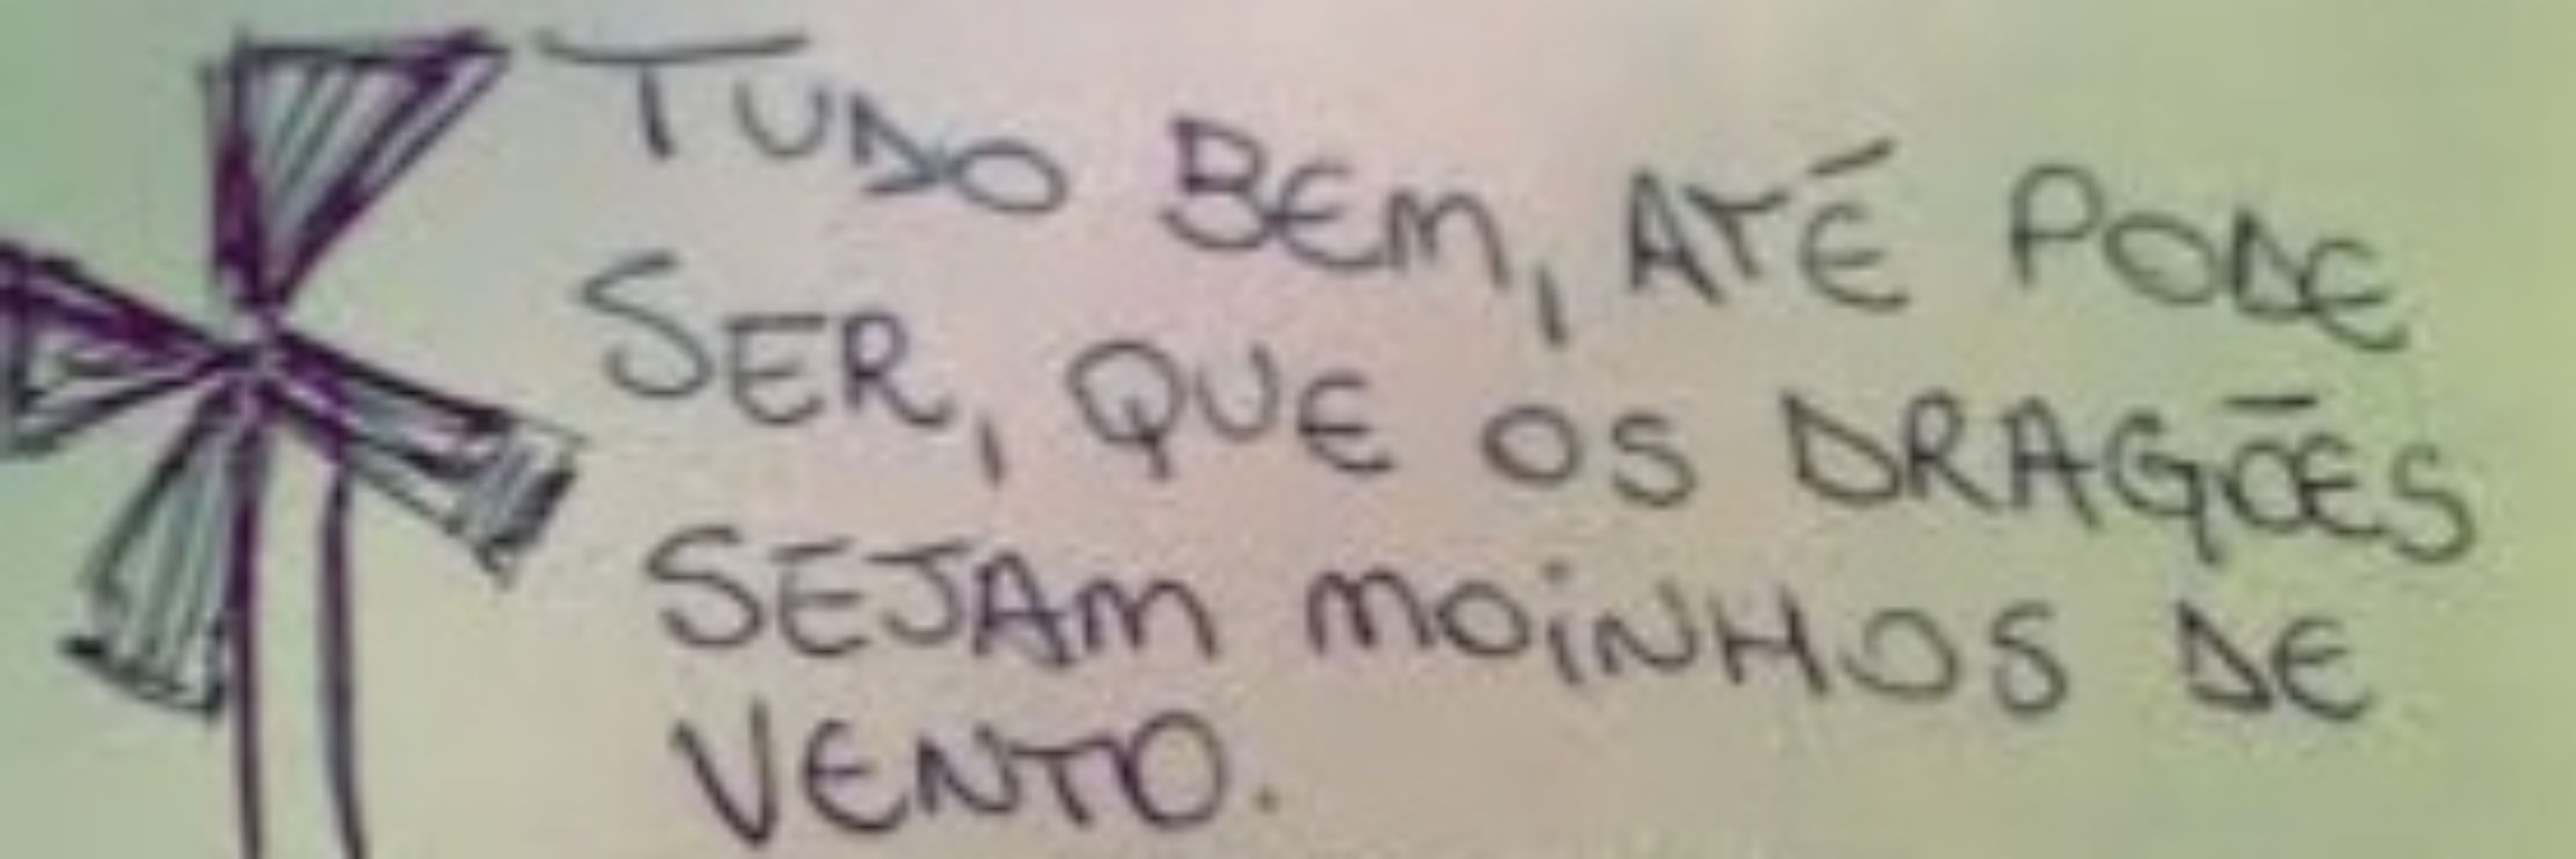 TUDO BEM, ATÉ PODE
SER, QUE OS DRAGÕES
SEJAM MOINHOS DE
VENTO.